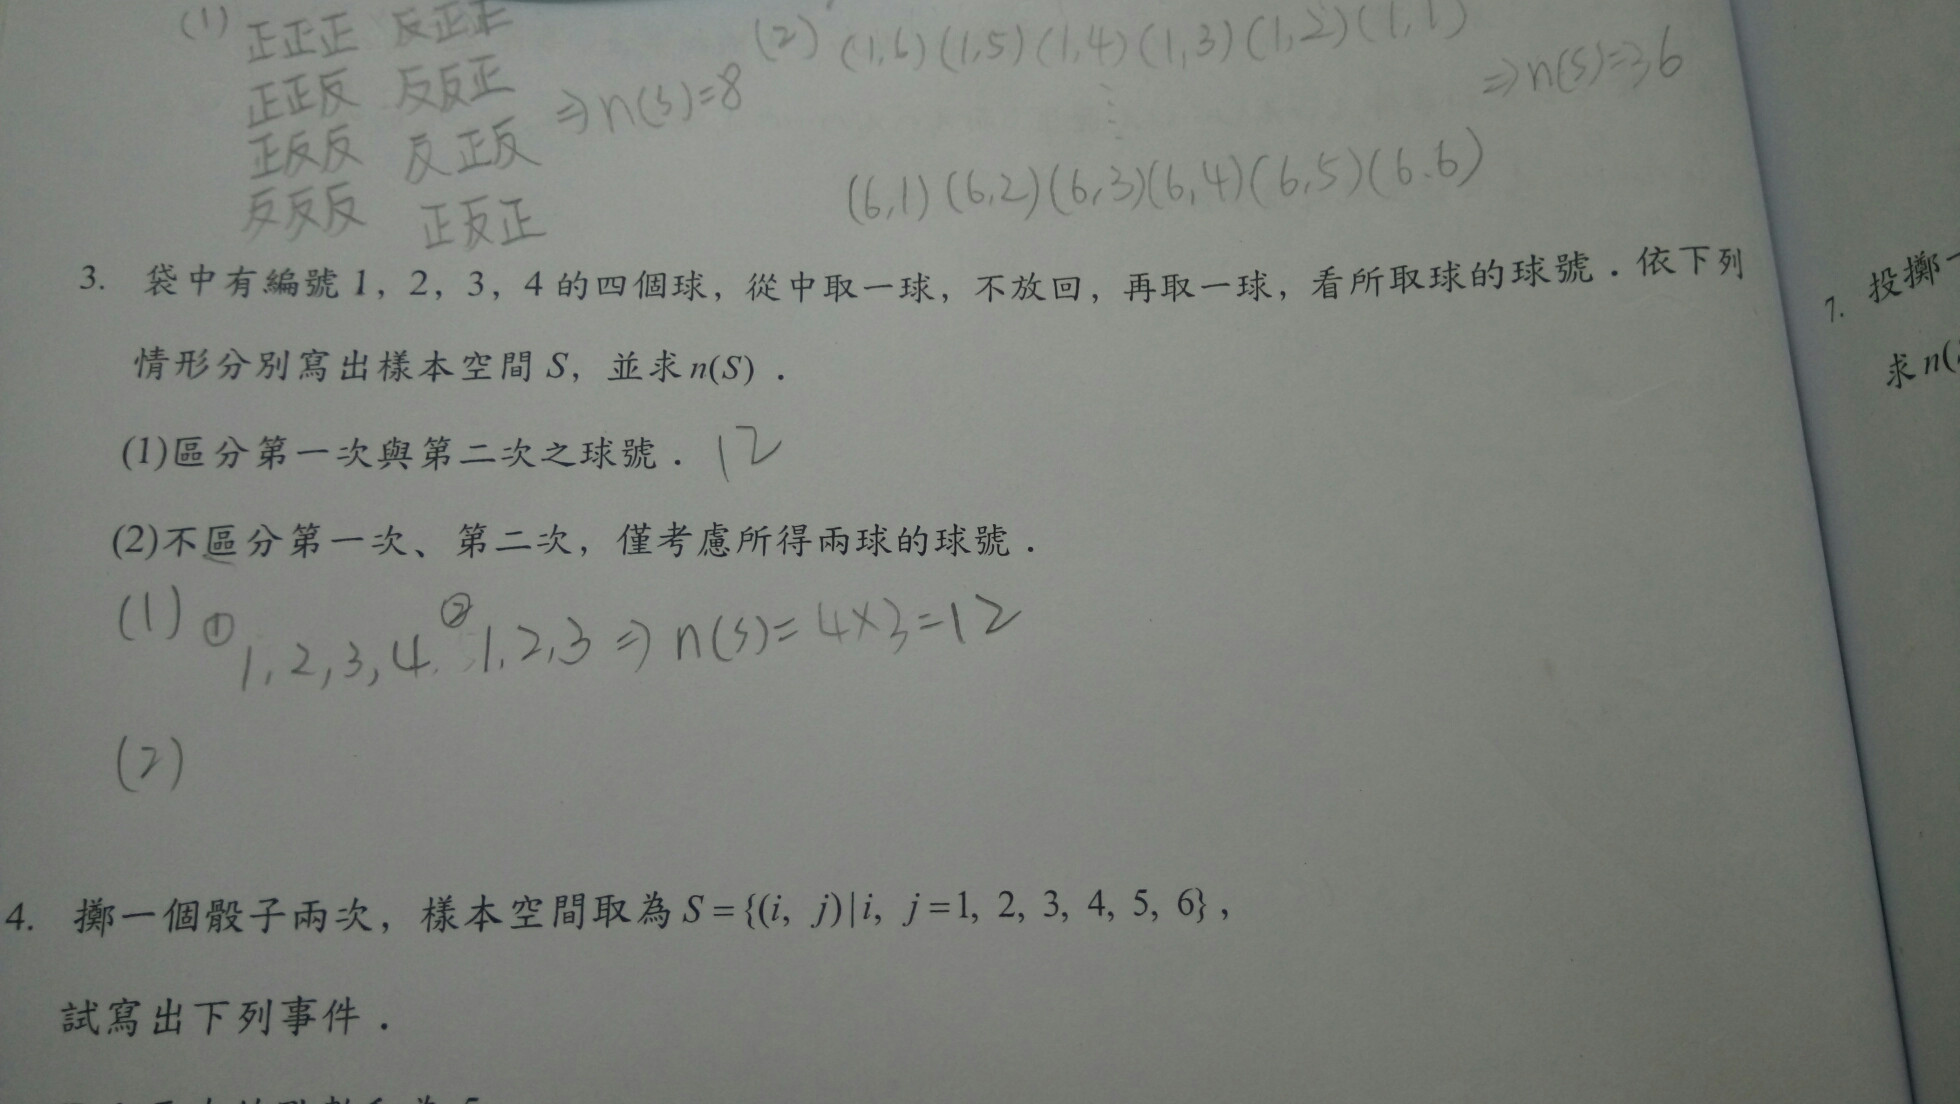 (1) 正正正 反正正 (2) (1,6) (1,5) (1,4) (1,3) (1,2) (1,1)
正正反 反反正 ⇒ n(S)=8 ⇒ n(S)=36
正反反 反正反
反反反 正反正 (6,1) (6,2) (6,3) (6,4) (6,5) (6.6)
3. 袋中有編號 1, 2, 3, 4 的四個球, 從中取一球, 不放回, 再取一球, 看所取球的球號. 依下列
情形分別寫出樣本空間 S, 並求 n(S).
(1)區分第一次與第二次之球號. 12
(2)不區分第一次、第二次, 僅考慮所得兩球的球號.
(1) ① 1,2,3,4. ② 1,2,3 ⇒ n(S)= 4×3=12
(2)
4. 擲一個骰子兩次, 樣本空間取為 S={(i, j)|i, j=1, 2, 3, 4, 5, 6},
試寫出下列事件.
7. 投擲一
求 n(